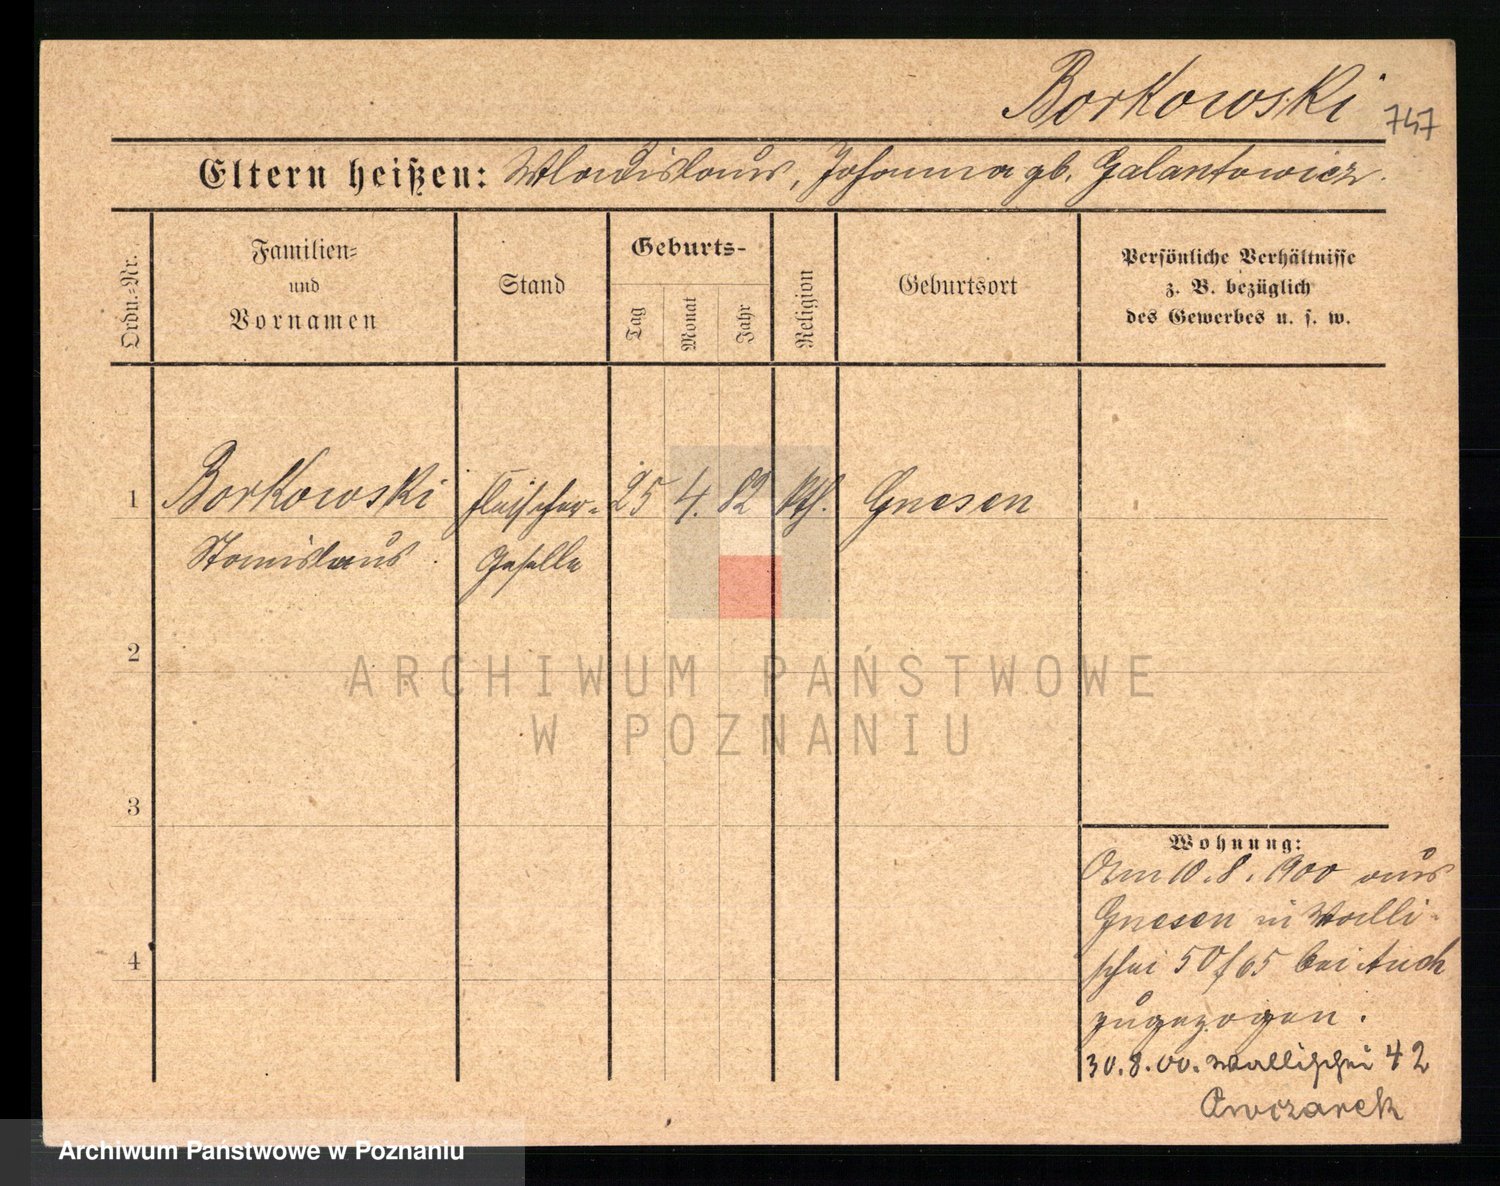 Borkowski
747
Eltern heißen: Wladislaus, Johanna gb. Galantowicz.
Ordn.-Nr.
Familien-
und
Vornamen
Stand
Geburts-
Tag
Monat
Jahr
Religion
Geburtsort
Persönliche Verhältnisse
z. B. bezüglich
des Gewerbes u. s. w.
1
Borkowski
Stanislaus
Fleischer-
Geselle
25
4.
82
kth.
Gnesen
2
3
4
ARCHIWUM PAŃSTWOWE
W POZNANIU
Wohnung:
Am 10.8.1900 aus
Gnesen in Walli-
schei 50/65 bei
zugezogen.
30.8.00. Wallischei 42
Archiwum Państwowe w Poznaniu